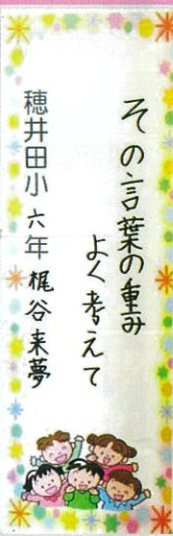 その言葉の重み
よく考えて
穂井田小 六年 梶谷来夢